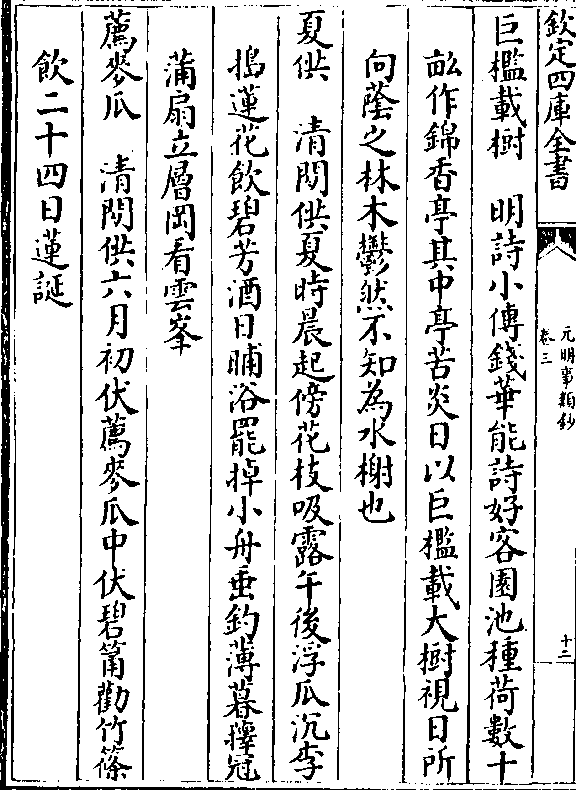 欽定四庫全書
元明事類鈔
卷三
十二
巨檻載樹　明詩小傳錢華能詩好客園池種荷數十
畝作錦香亭其中亭苦炎日以巨檻載大樹視日所
向蔭之林木鬱然不知為水榭也
夏供　清閒供夏時晨起傍花枝吸露午後浮瓜沉李
搗蓮花飲碧芳酒日晡浴罷掉小舟垂釣薄暮籜冠
蒲扇立層岡看雲峯
薦麥瓜　清閒供六月初伏薦麥瓜中伏碧筩勸竹篠
飲二十四日蓮誕